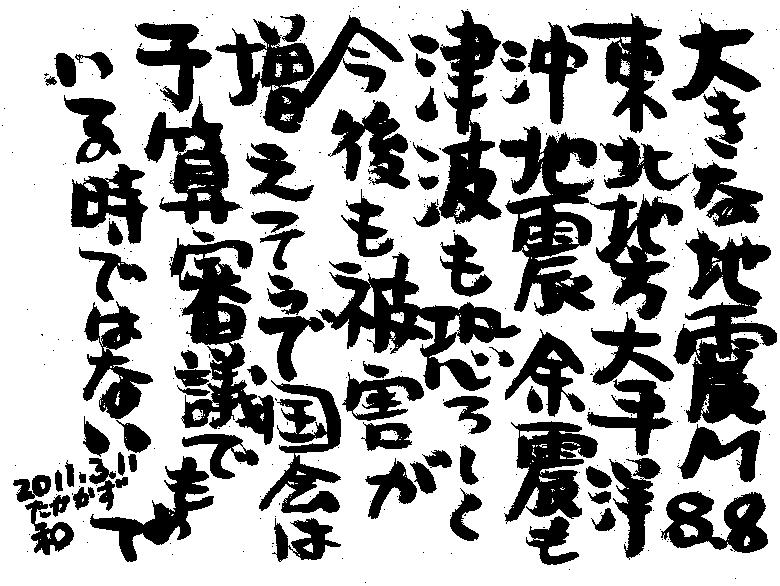 大きな地震M8.8
東北地方大平洋
沖地震余震も
津波も恐ろしく
今後も被害が
増えそうで国会は
予算審議でもめて
いる時ではない
2011.3.11
たかかず
和